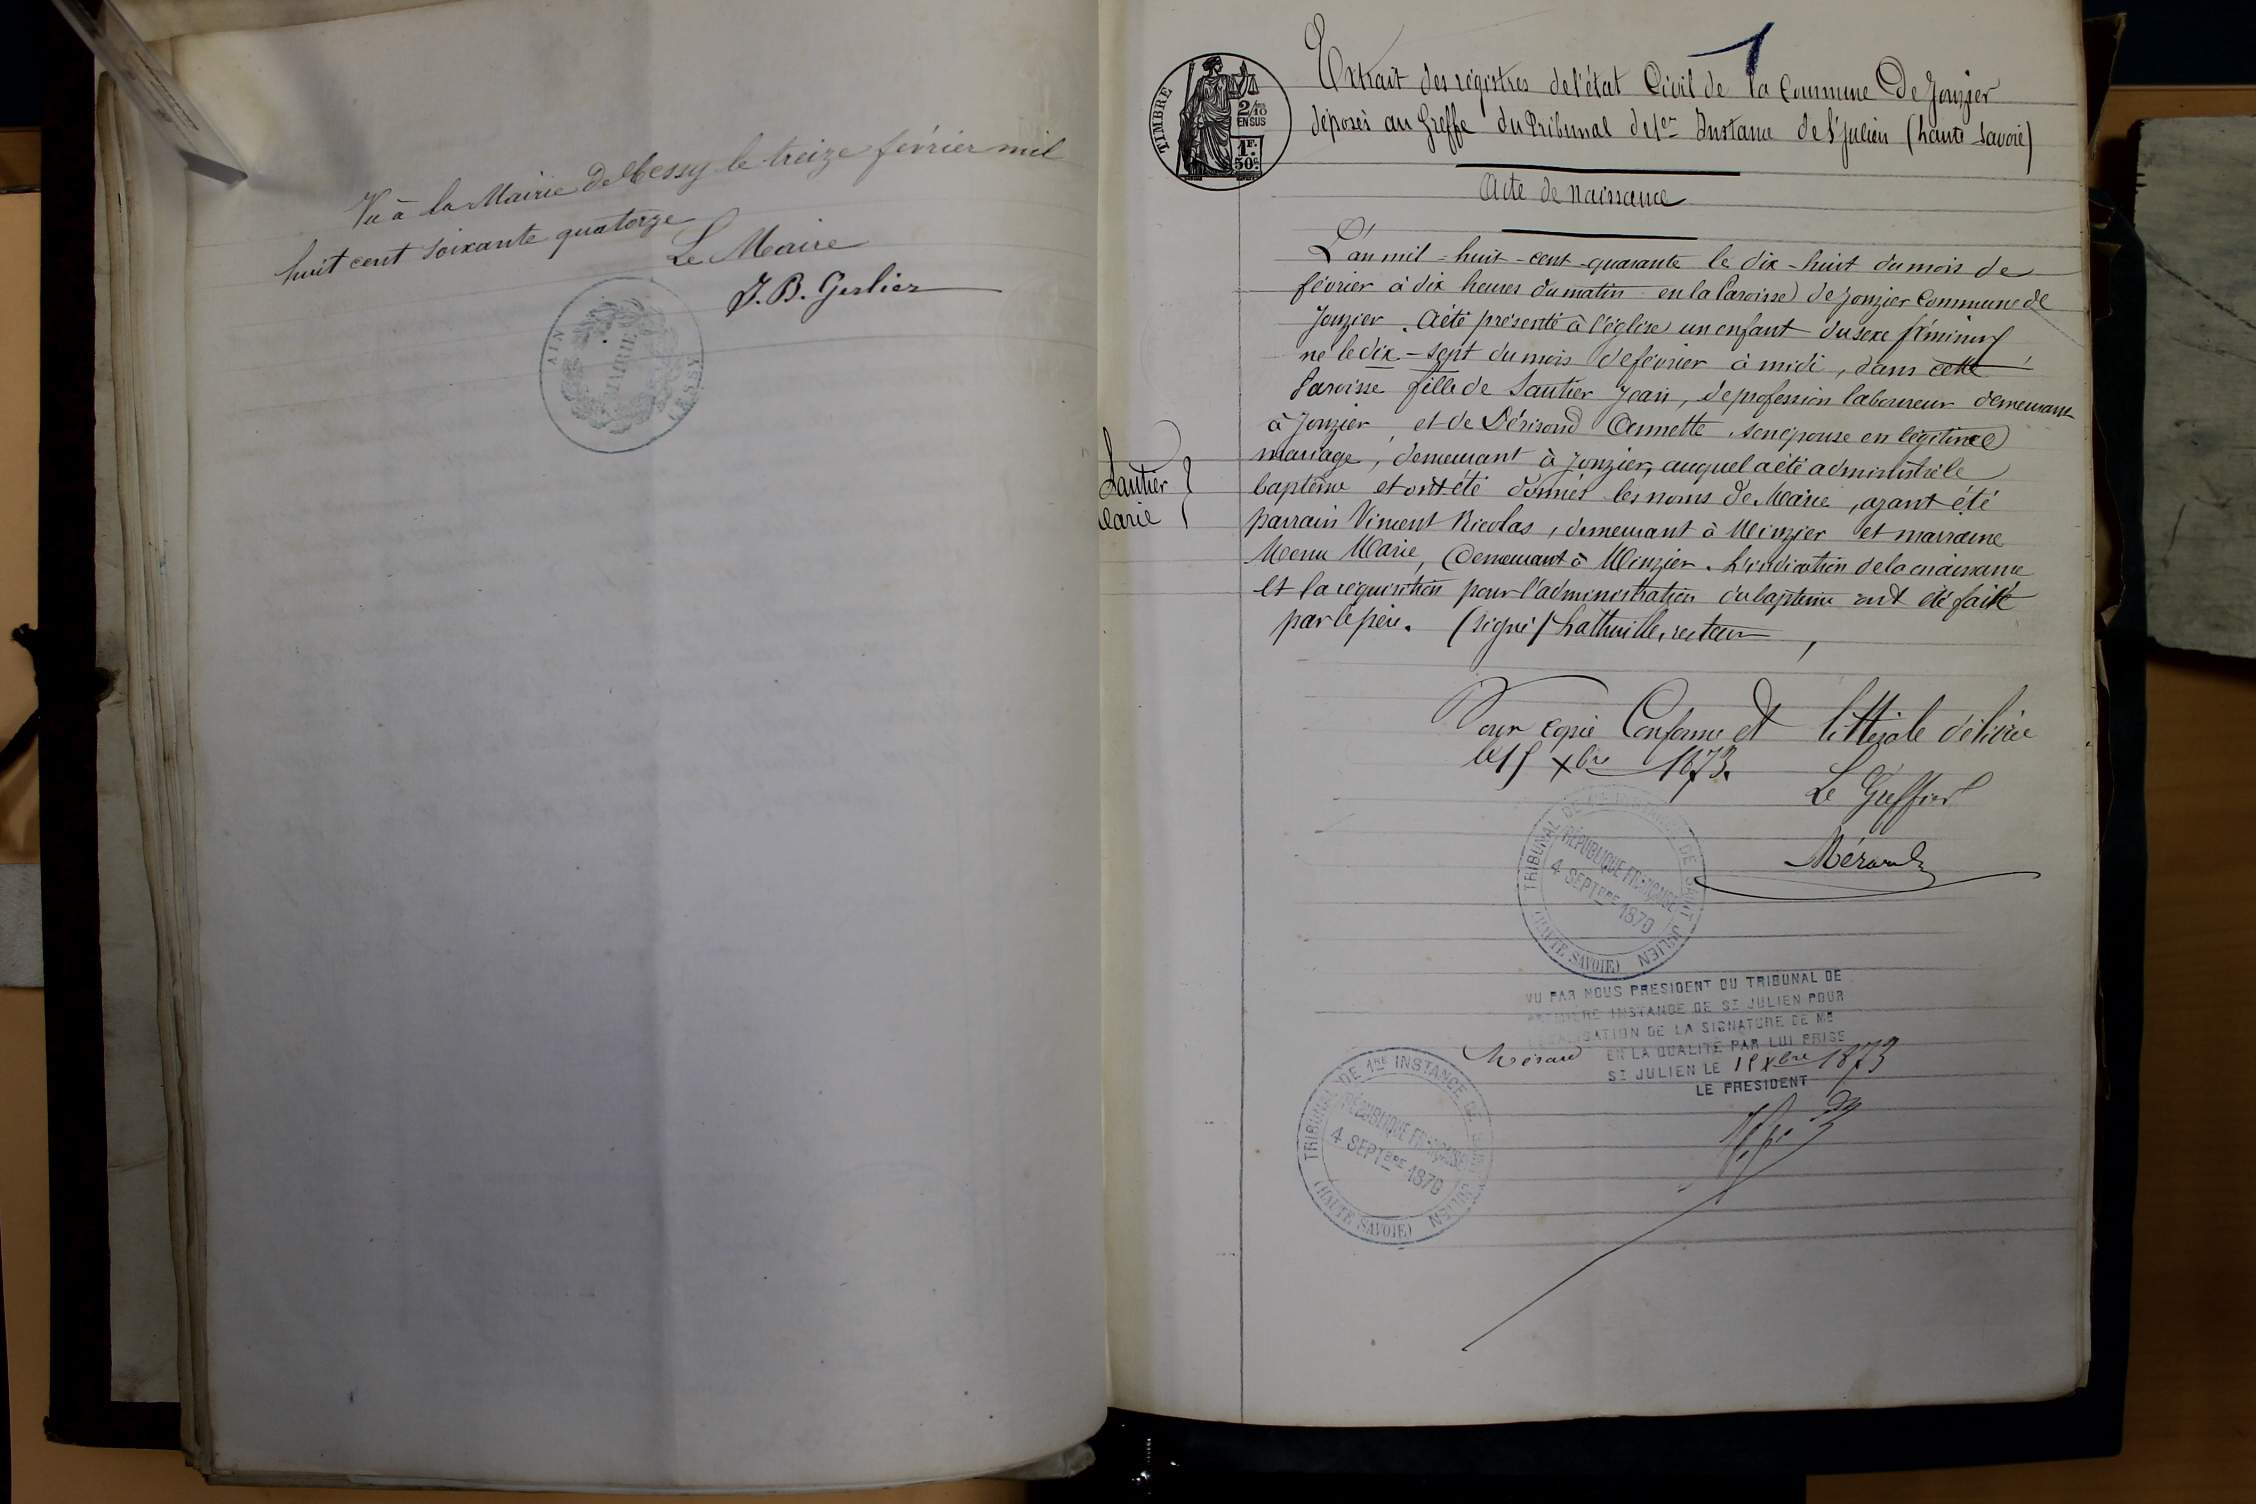 Vu à la Mairie de Cessy le treize février mil
huit cent soixante quatorze
Le Maire
J. B. Gerlier
AIN
MAIRIE
CESSY
TIMBRE
2/10
EN SUS
1 F.
50 c.
1
Extrait des régistres de l'état Civil de la Commune De Jonzier
déposés au Greffe du Tribunal de 1er Instance de St Julien (haute Savoie)
Acte de naissance
L'an mil-huit-cent-quarante le dix-huit du mois de
février à dix heures du matin en la Paroisse de Jonzier Commune de
Jonzier. A été présenté à l'église un enfant du sexe féminin
né le dix-sept du mois de février à midi, dans cette
Paroisse fille de Sautier Jean, de profession laboureur demeurant
à Jonzier, et de Dérisoud Annette son épouse en légitime
mariage, demeurant à Jonzier, auquel a été administré le
baptême et ont été donnés les noms de Marie, ayant été
parrain Vincent Nicolas, demeurant à Minzier et marraine
Menu Marie, demeurant à Minzier. L'indication de la naissance
et la réquisition pour l'administration du baptême ont été faite
par le père. (signé) Lathuille, recteur
Sautier
Marie
Pour copie Conforme et littérale délivrée
le 15 xbre 1873.
Le Greffier
Mérand
TRIBUNAL DE 1RE INSTANCE DE SAINT JULIEN
RÉPUBLIQUE FRANÇAISE
4 SEPTBRE 1870
(HAUTE SAVOIE)
VU PAR NOUS PRESIDENT DU TRIBUNAL DE
PREMIERE INSTANCE DE ST JULIEN POUR
LEGALISATION DE LA SIGNATURE DE ME
Mérand EN LA QUALITE PAR LUI PRISE
ST JULIEN LE 15 xbre 1873
LE PRESIDENT
TRIBUNAL DE 1RE INSTANCE DE SAINT JULIEN
RÉPUBLIQUE FRANÇAISE
4 SEPTBRE 1870
(HAUTE SAVOIE)